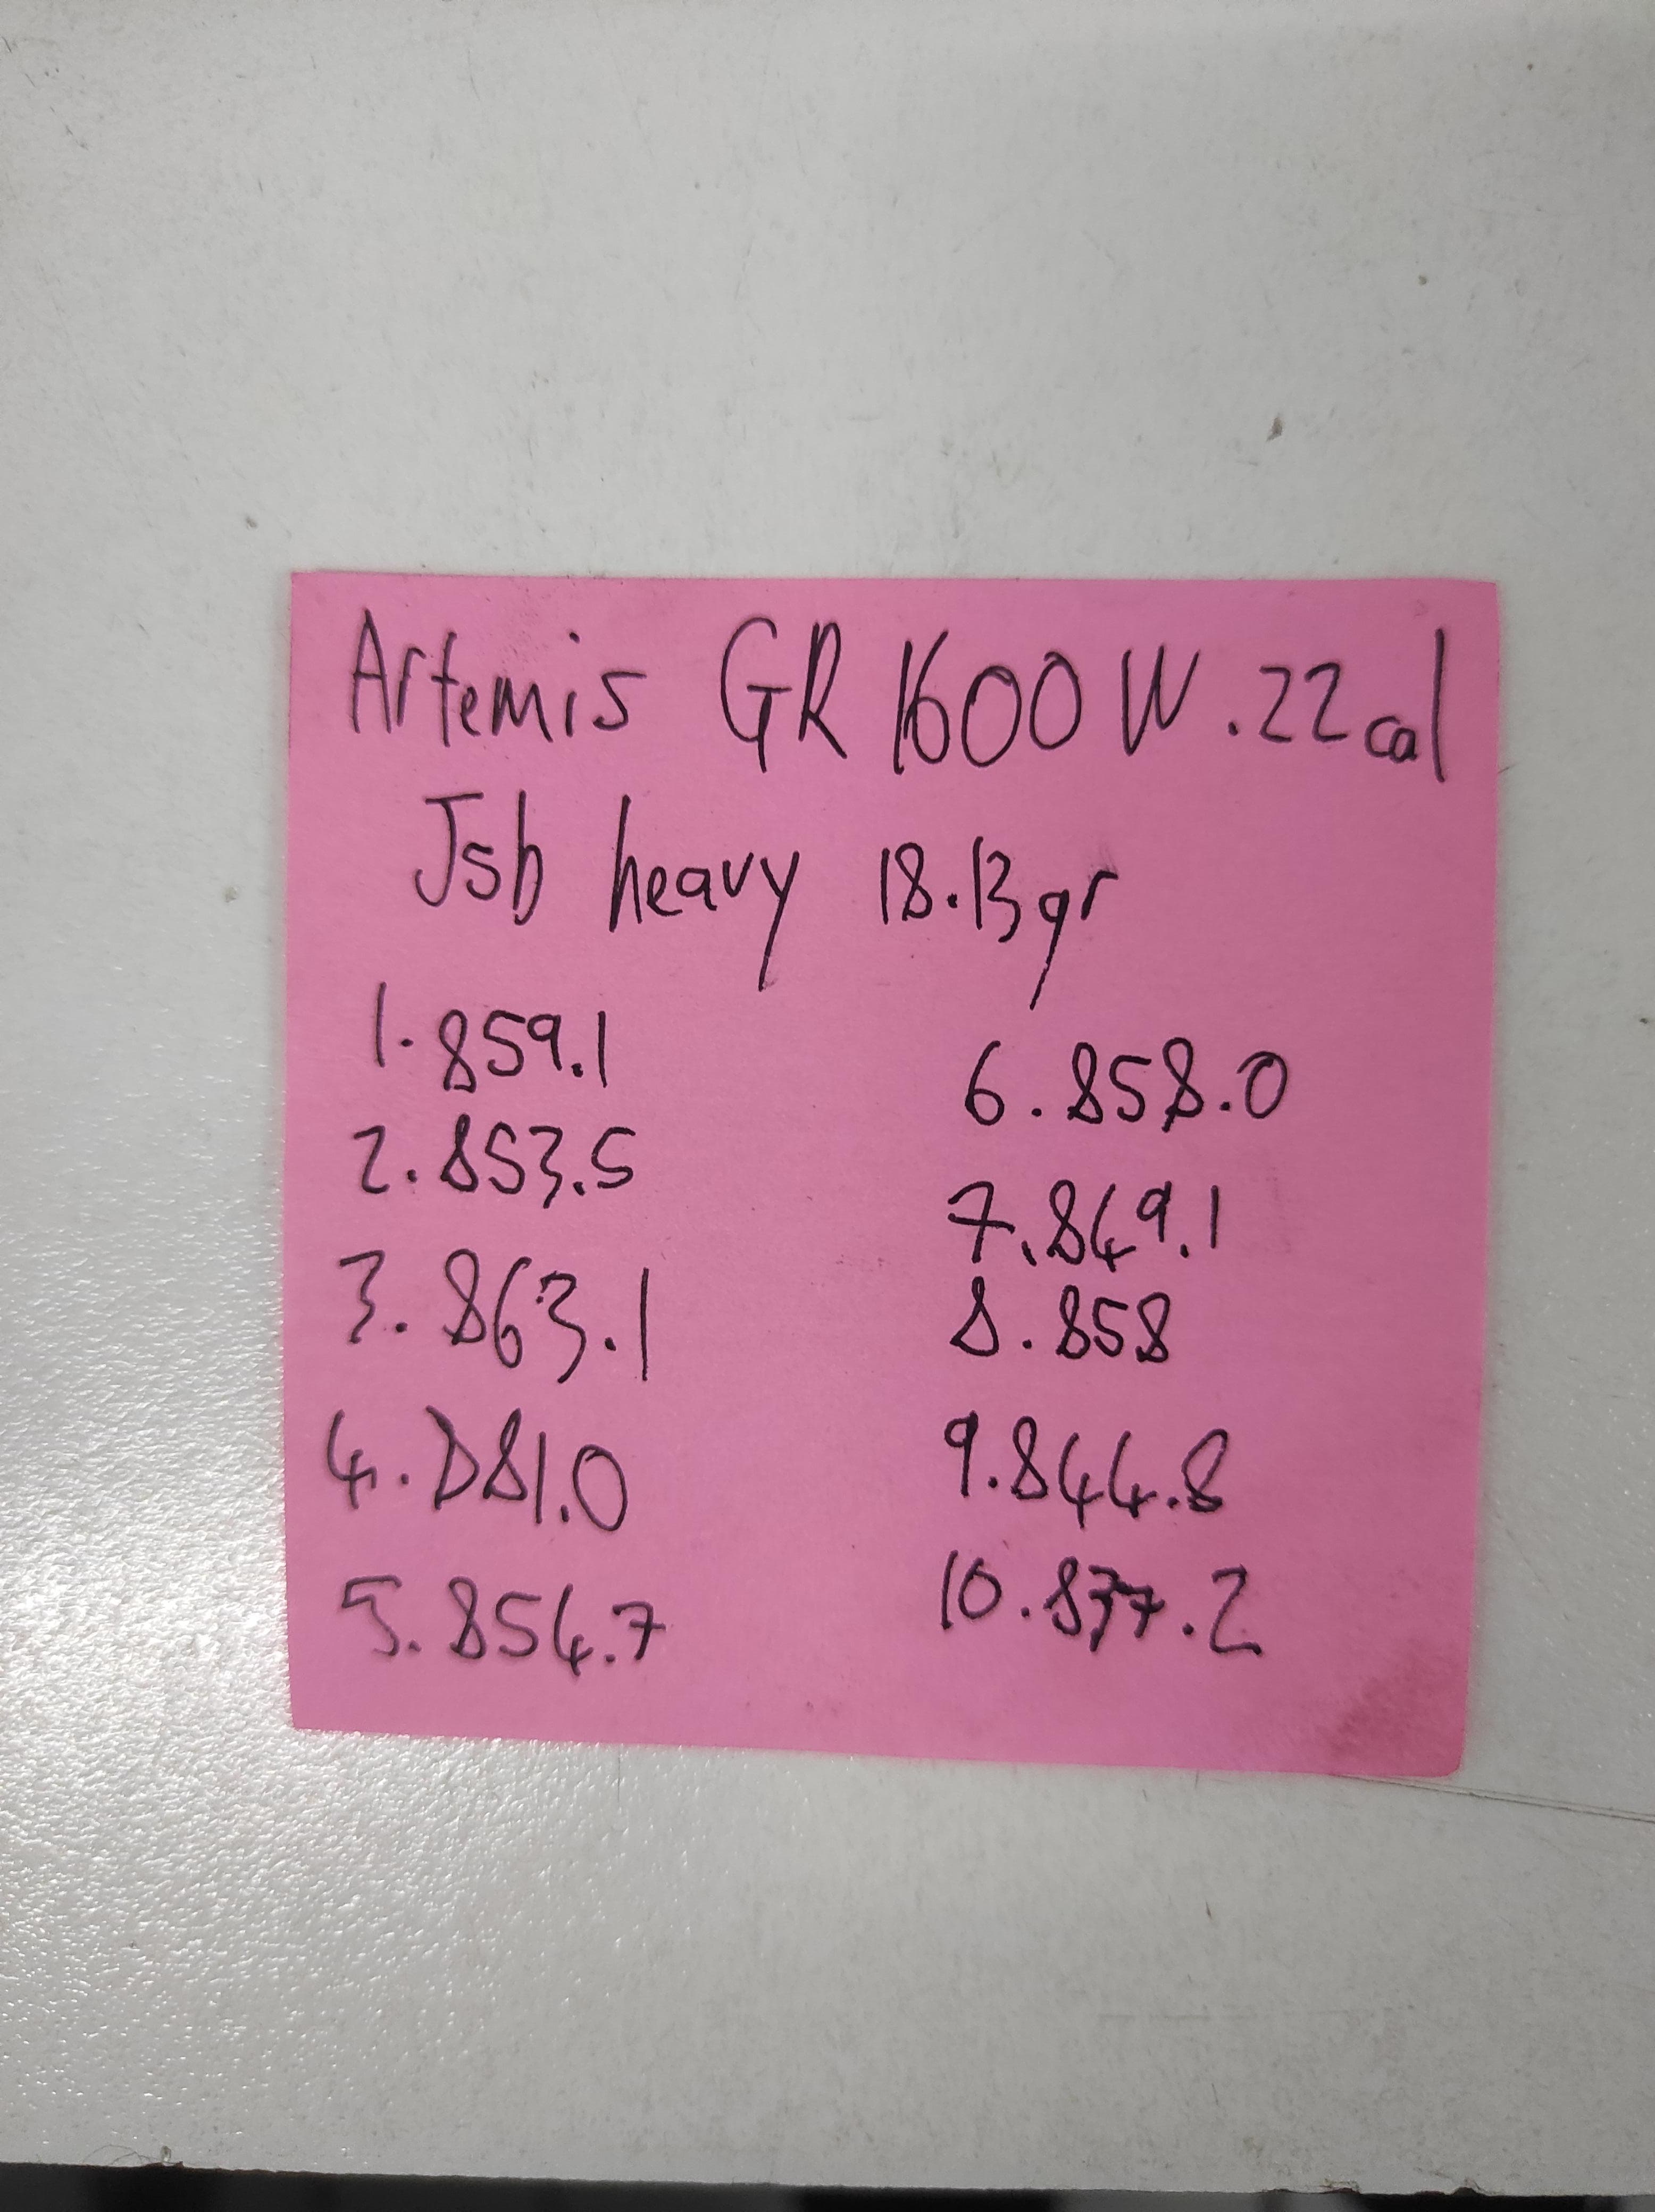 Artemis GR1600W .22cal
Jsb heavy 18.13gr
1. 859.1
2. 853.5
3. 863.1
4. 881.0
5. 854.7
6. 858.0
7. 849.1
8. 858
9. 844.8
10. 837.2